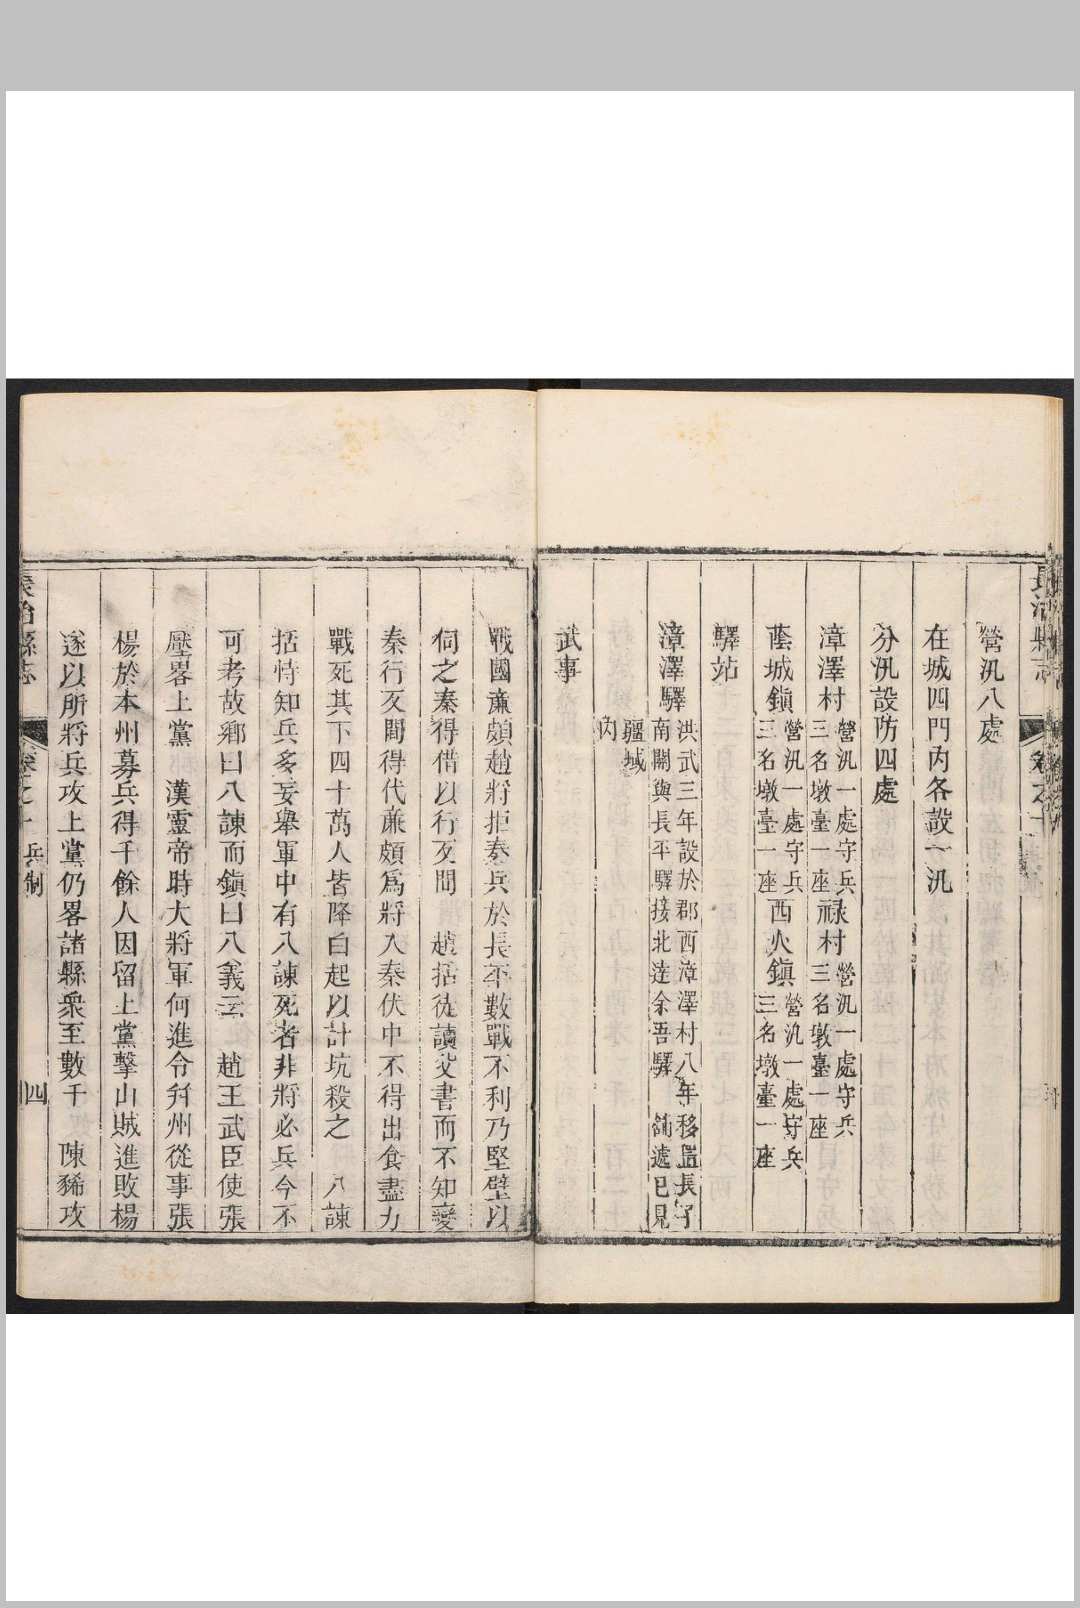 長治縣志
卷之十
營汛八處
在城四門內各設一汛
分汛設防四處
漳澤村 營汛一處守兵三名墩臺一座 禄村 營汛一處守兵三名墩臺一座
蔭城鎮 營汛一處守兵三名墩臺一座 西火鎮 營汛一處守兵三名墩臺一座
驛站
漳澤驛 洪武三年設於郡西漳澤村八年移置長子南關與長平驛接北達余吾驛 舖遞已見疆域內
武事
戰國亷頗趙將拒秦兵於長平數戰不利乃堅壁以
伺之秦得借以行反間 趙括從讀父書而不知變
秦行反間得代亷頗爲將入秦伏中不得出食盡力
戰死其下四十萬人皆降白起以計坑殺之 八諫
括恃知兵多妄舉軍中有八諫死者非將必兵今不
可考故鄕曰八諫而鎮曰八義云 趙王武臣使張
壓畧上黨 漢靈帝時大將軍何進令幷州從事張
楊於本州募兵得千餘人因留上黨擊山賊進敗楊
遂以所將兵攻上黨仍畧諸縣衆至數千 陳豨攻
長治縣志
卷之十 兵制
四